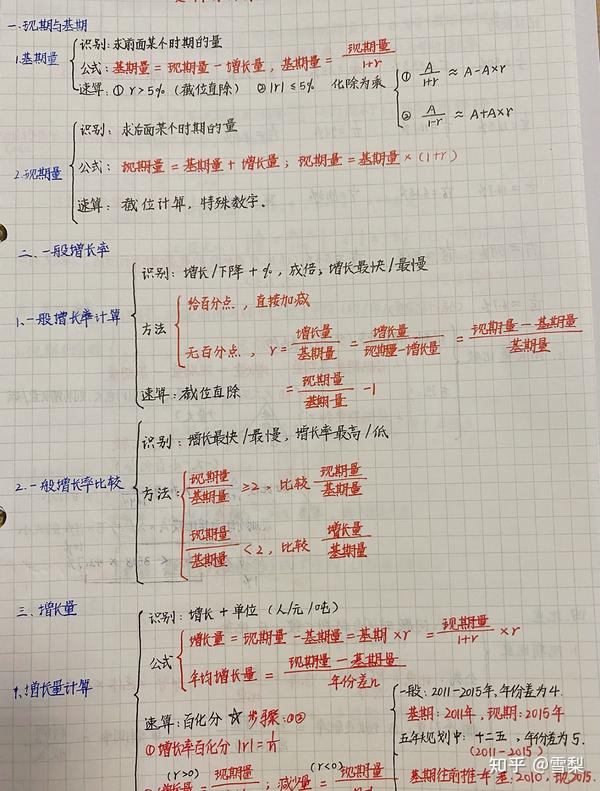 一.现期与基期
1.基期量
识别:求前面某个时期的量
公式:基期量=现期量-增长量,基期量=现期量/1+r
速算:① r>5% (截位直除) ②|r|≤5% 化除为乘
① A/1+r ≈ A-A×r
② A/1-r ≈ A+A×r
2.现期量
识别:求后面某个时期的量
公式:现期量=基期量+增长量;现期量=基期量×(1+r)
速算:截位计算,特殊数字.
二.一般增长率
1.一般增长率计算
识别:增长/下降+%,成倍;增长最快/最慢
方法
给百分点,直接加减
无百分点,r=增长量/基期量=增长量/现期量-增长量=现期量-基期量/基期量
=现期量/基期量 -1
速算:截位直除
2.一般增长率比较
识别:增长最快/最慢,增长率最高/低
方法:
现期量/基期量≥2、比较 现期量/基期量
现期量/基期量<2,比较 增长量/基期量
三.增长量
1.增长量计算
识别:增长+单位(人/元/吨)
公式
增长量=现期量-基期量=基期×r=现期量/1+r×r
年均增长量=现期量-基期量/年份差n
速算:百化分☆步骤:①②
①增长率百分化|r|=1/n
(r>0) (r<0)
增长量=现期量 ;减少量=现期量
一般:2011-2015年,年份差为4.
基期:2011年,现期:2015年
五年规划中:十二五,年份差为5.
(2011-2015)
基期往前推一年差:2010,现2015.
知乎 @雪梨